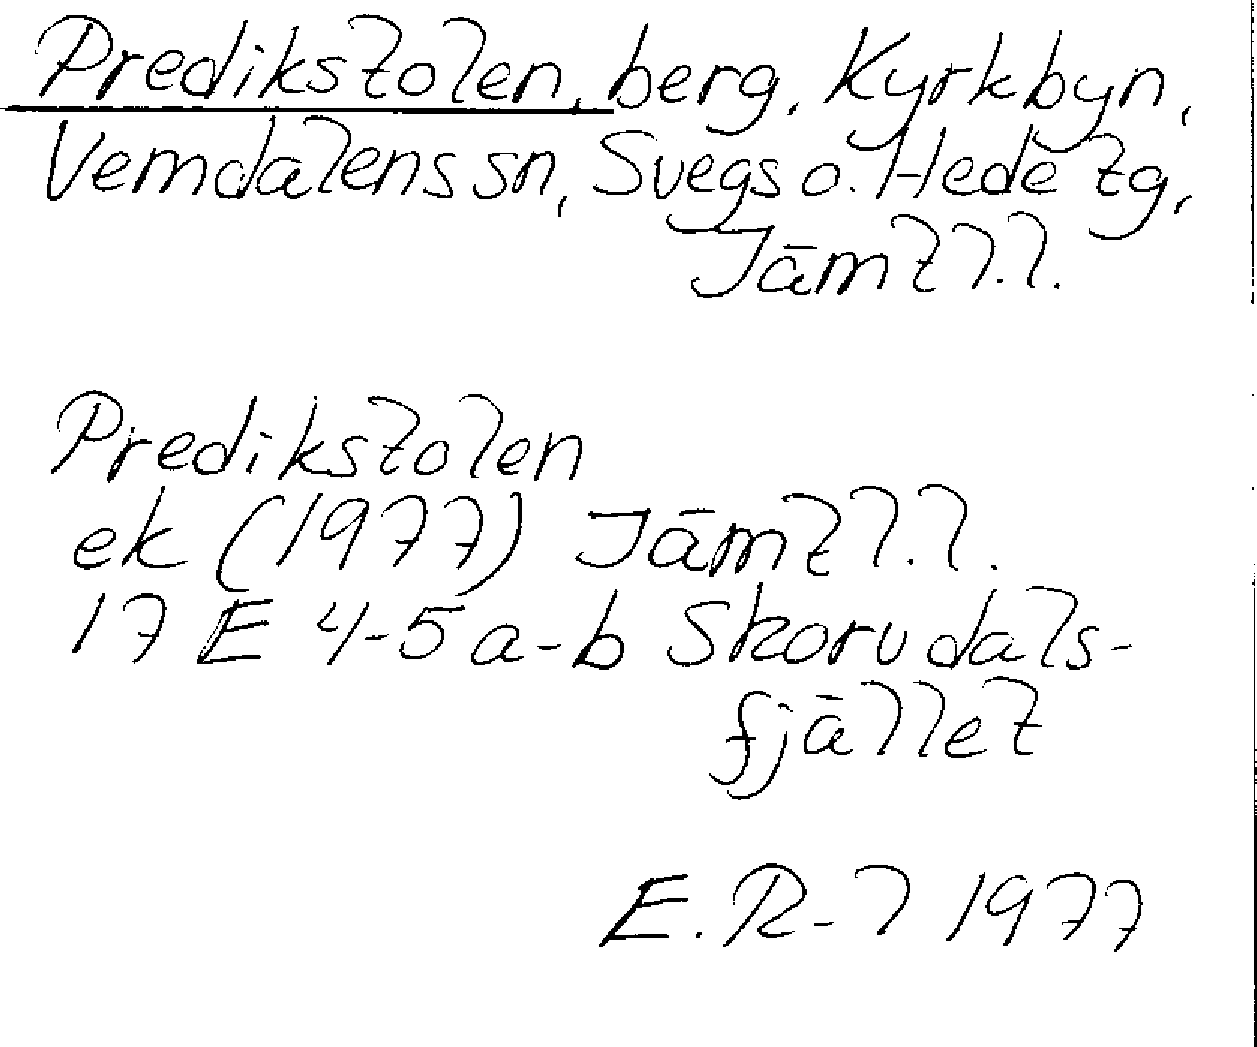 Predikstolen, berg, Kyrkbyn,
Vemdalens sn, Svegs o. Hede tg,
Jämtl.l.
Predikstolen
ek (1977) Jämtl.l.
17 E 4-5 a-b Skorvdals-
fjället
E.R-l 1977